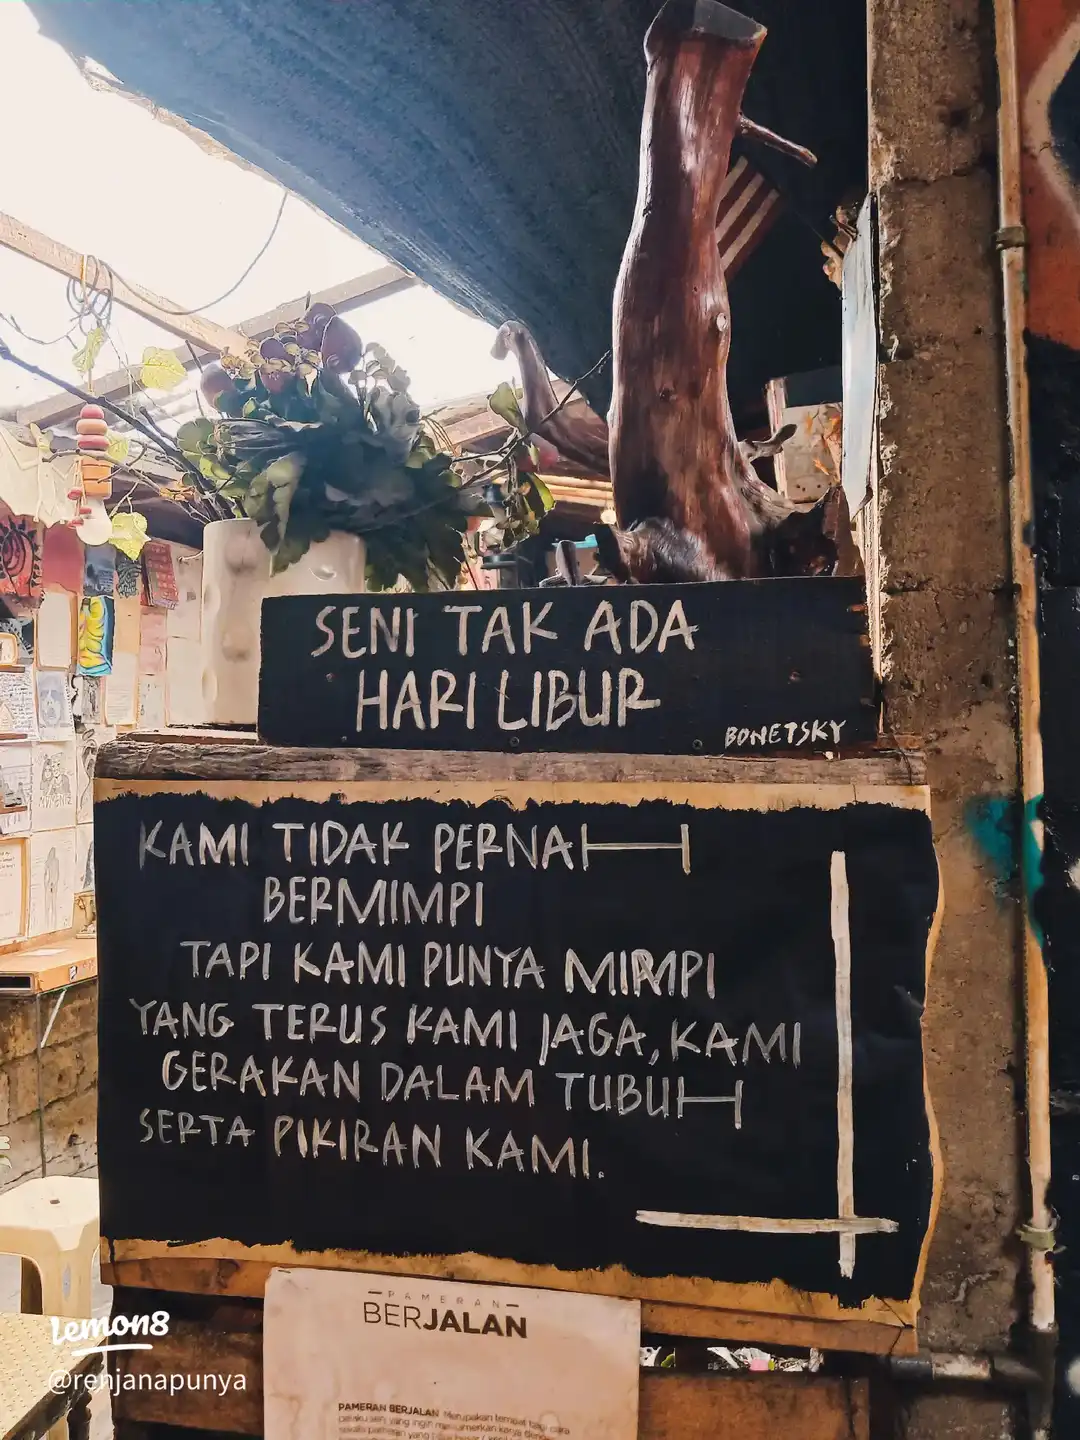 SENI TAK ADA
HARI LIBUR
BONETSKY
KAMI TIDAK PERNAH
BERMIMPI
TAPI KAMI PUNYA MIMPI
YANG TERUS KAMI JAGA, KAMI
GERAKAN DALAM TUBUH
SERTA PIKIRAN KAMI.
PAMERAN
BERJALAN
PAMERAN BERJALAN Merupakan tempat bagi para
lemon8
@renjanapunya